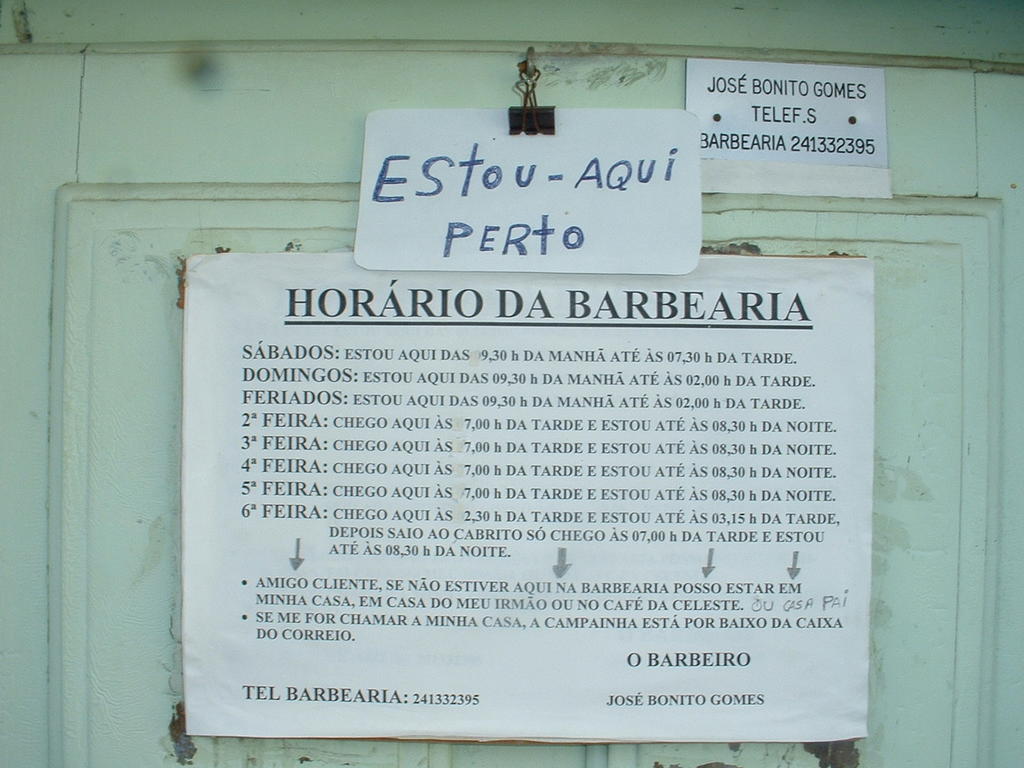 JOSÉ BONITO GOMES
TELEF.S
BARBEARIA 241332395
EStoU-AQUi
PERtO
HORÁRIO DA BARBEARIA
SÁBADOS: ESTOU AQUI DAS 09,30 h DA MANHÃ ATÉ ÀS 07,30 h DA TARDE.
DOMINGOS: ESTOU AQUI DAS 09,30 h DA MANHÃ ATÉ ÀS 02,00 h DA TARDE.
FERIADOS: ESTOU AQUI DAS 09,30 h DA MANHÃ ATÉ ÀS 02,00 h DA TARDE.
2ª FEIRA: CHEGO AQUI ÀS 07,00 h DA TARDE E ESTOU ATÉ ÀS 08,30 h DA NOITE.
3ª FEIRA: CHEGO AQUI ÀS 07,00 h DA TARDE E ESTOU ATÉ ÀS 08,30 h DA NOITE.
4ª FEIRA: CHEGO AQUI ÀS 07,00 h DA TARDE E ESTOU ATÉ ÀS 08,30 h DA NOITE.
5ª FEIRA: CHEGO AQUI ÀS 07,00 h DA TARDE E ESTOU ATÉ ÀS 08,30 h DA NOITE.
6ª FEIRA: CHEGO AQUI ÀS 02,30 h DA TARDE E ESTOU ATÉ ÀS 03,15 h DA TARDE,
DEPOIS SAIO AO CABRITO SÓ CHEGO ÀS 07,00 h DA TARDE E ESTOU
ATÉ ÀS 08,30 h DA NOITE.
• AMIGO CLIENTE, SE NÃO ESTIVER AQUI NA BARBEARIA POSSO ESTAR EM
MINHA CASA, EM CASA DO MEU IRMÃO OU NO CAFÉ DA CELESTE. OU CASA PAi
• SE ME FOR CHAMAR A MINHA CASA, A CAMPAINHA ESTÁ POR BAIXO DA CAIXA
DO CORREIO.
O BARBEIRO
TEL BARBEARIA: 241332395 JOSÉ BONITO GOMES